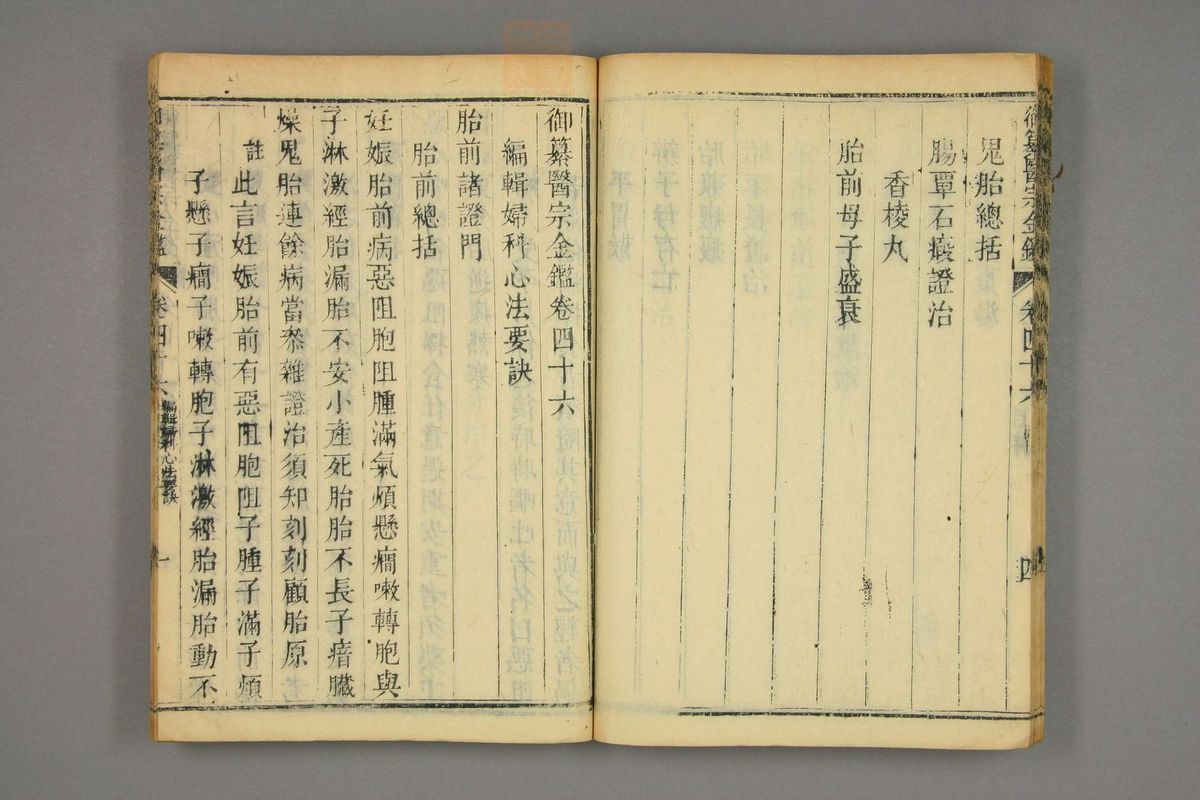 御纂醫宗金鑑 卷四十六 四
鬼胎總括
腸覃石瘕證治
香棱丸
胎前母子盛衰
御纂醫宗金鑑卷四十六
編輯婦科心法要訣
胎前諸證門
胎前總括
妊娠胎前病惡阻胞阻腫滿氣煩懸癎嗽轉胞與
子淋激經胎漏胎不安小產死胎胎不長子瘖臟
燥鬼胎連餘病當叅雜證治須知刻刻顧胎原
註 此言妊娠胎前有惡阻胞阻子腫子滿子煩
子懸子癎子嗽轉胞子淋激經胎漏胎動不
卷四十六 編輯婦科心法要訣 一